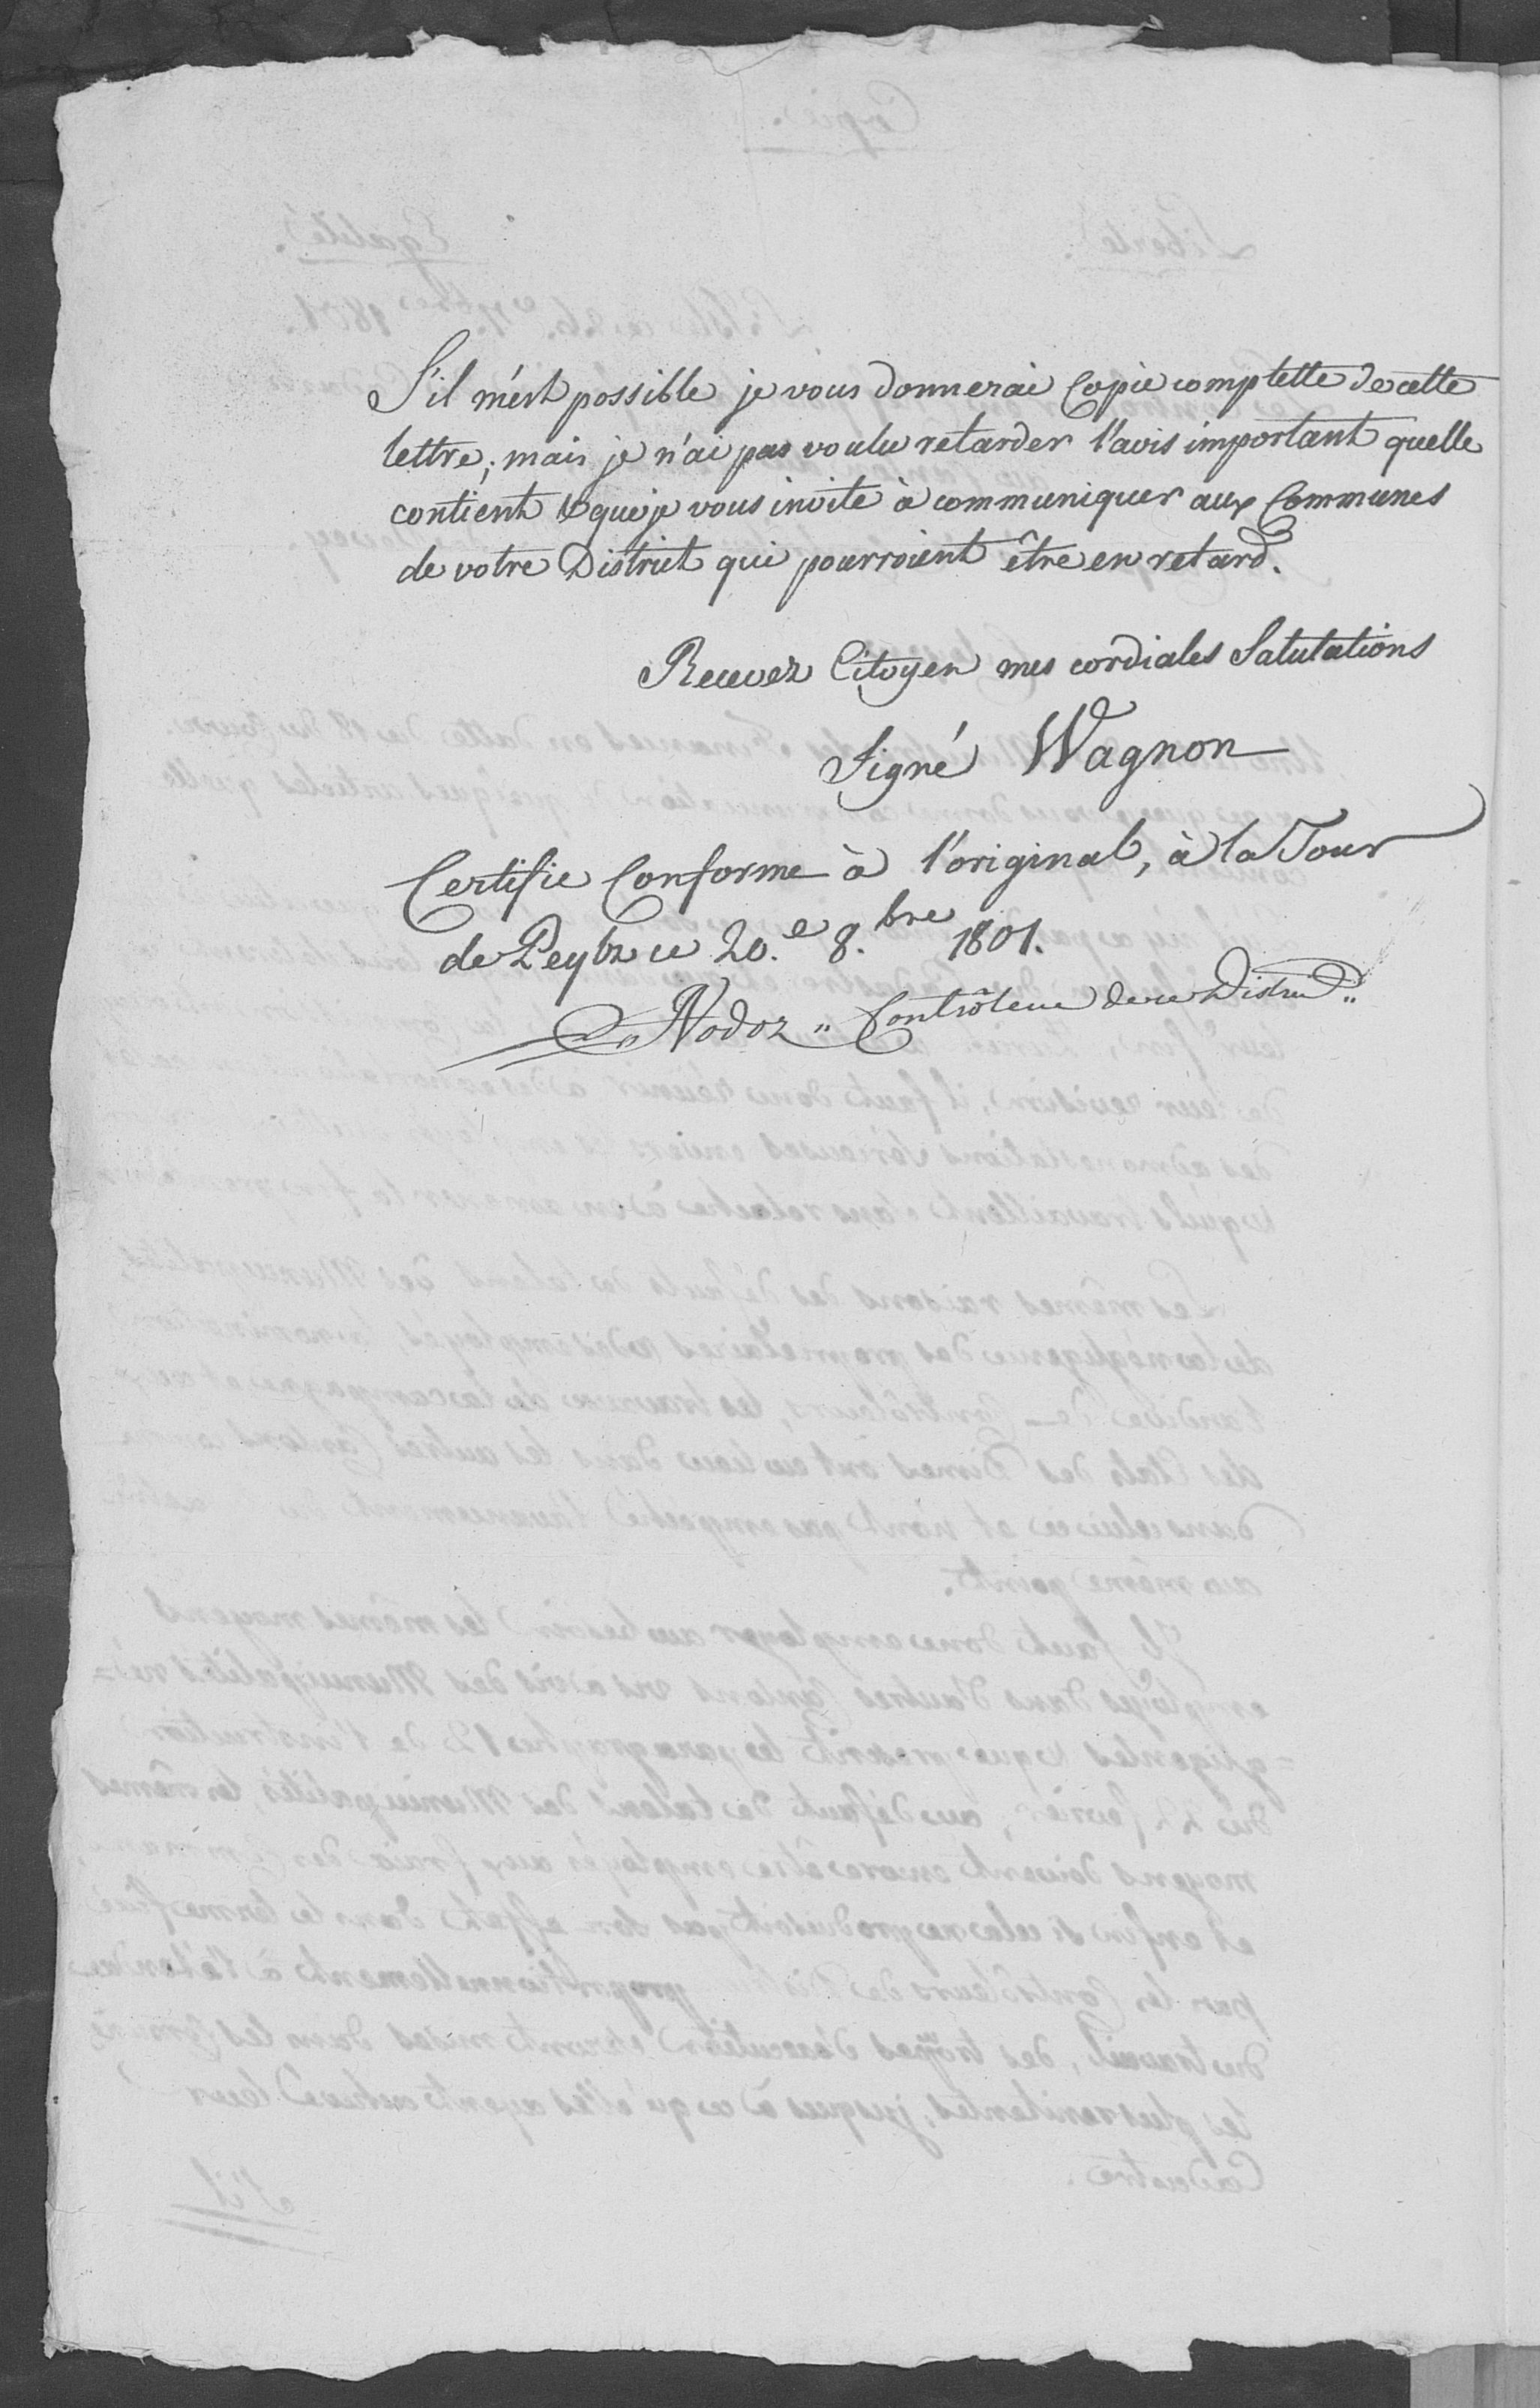 S'il m'est possible je vous donnerai Copie complette de cette
lettre; mais je n'ai pas voulu retarder l'avis important quelle
contient & que je vous invite à communiquer aux Communes
de votre District qui pourroient être en retard.
Recevez Citoyen mes cordiales Salutations
Signé Wagnon
Certifie Conforme à l'original, à la Tour
de Peylz ce 20.e 8.bre 1801.
Nodoz " Contrôleur de ce District "